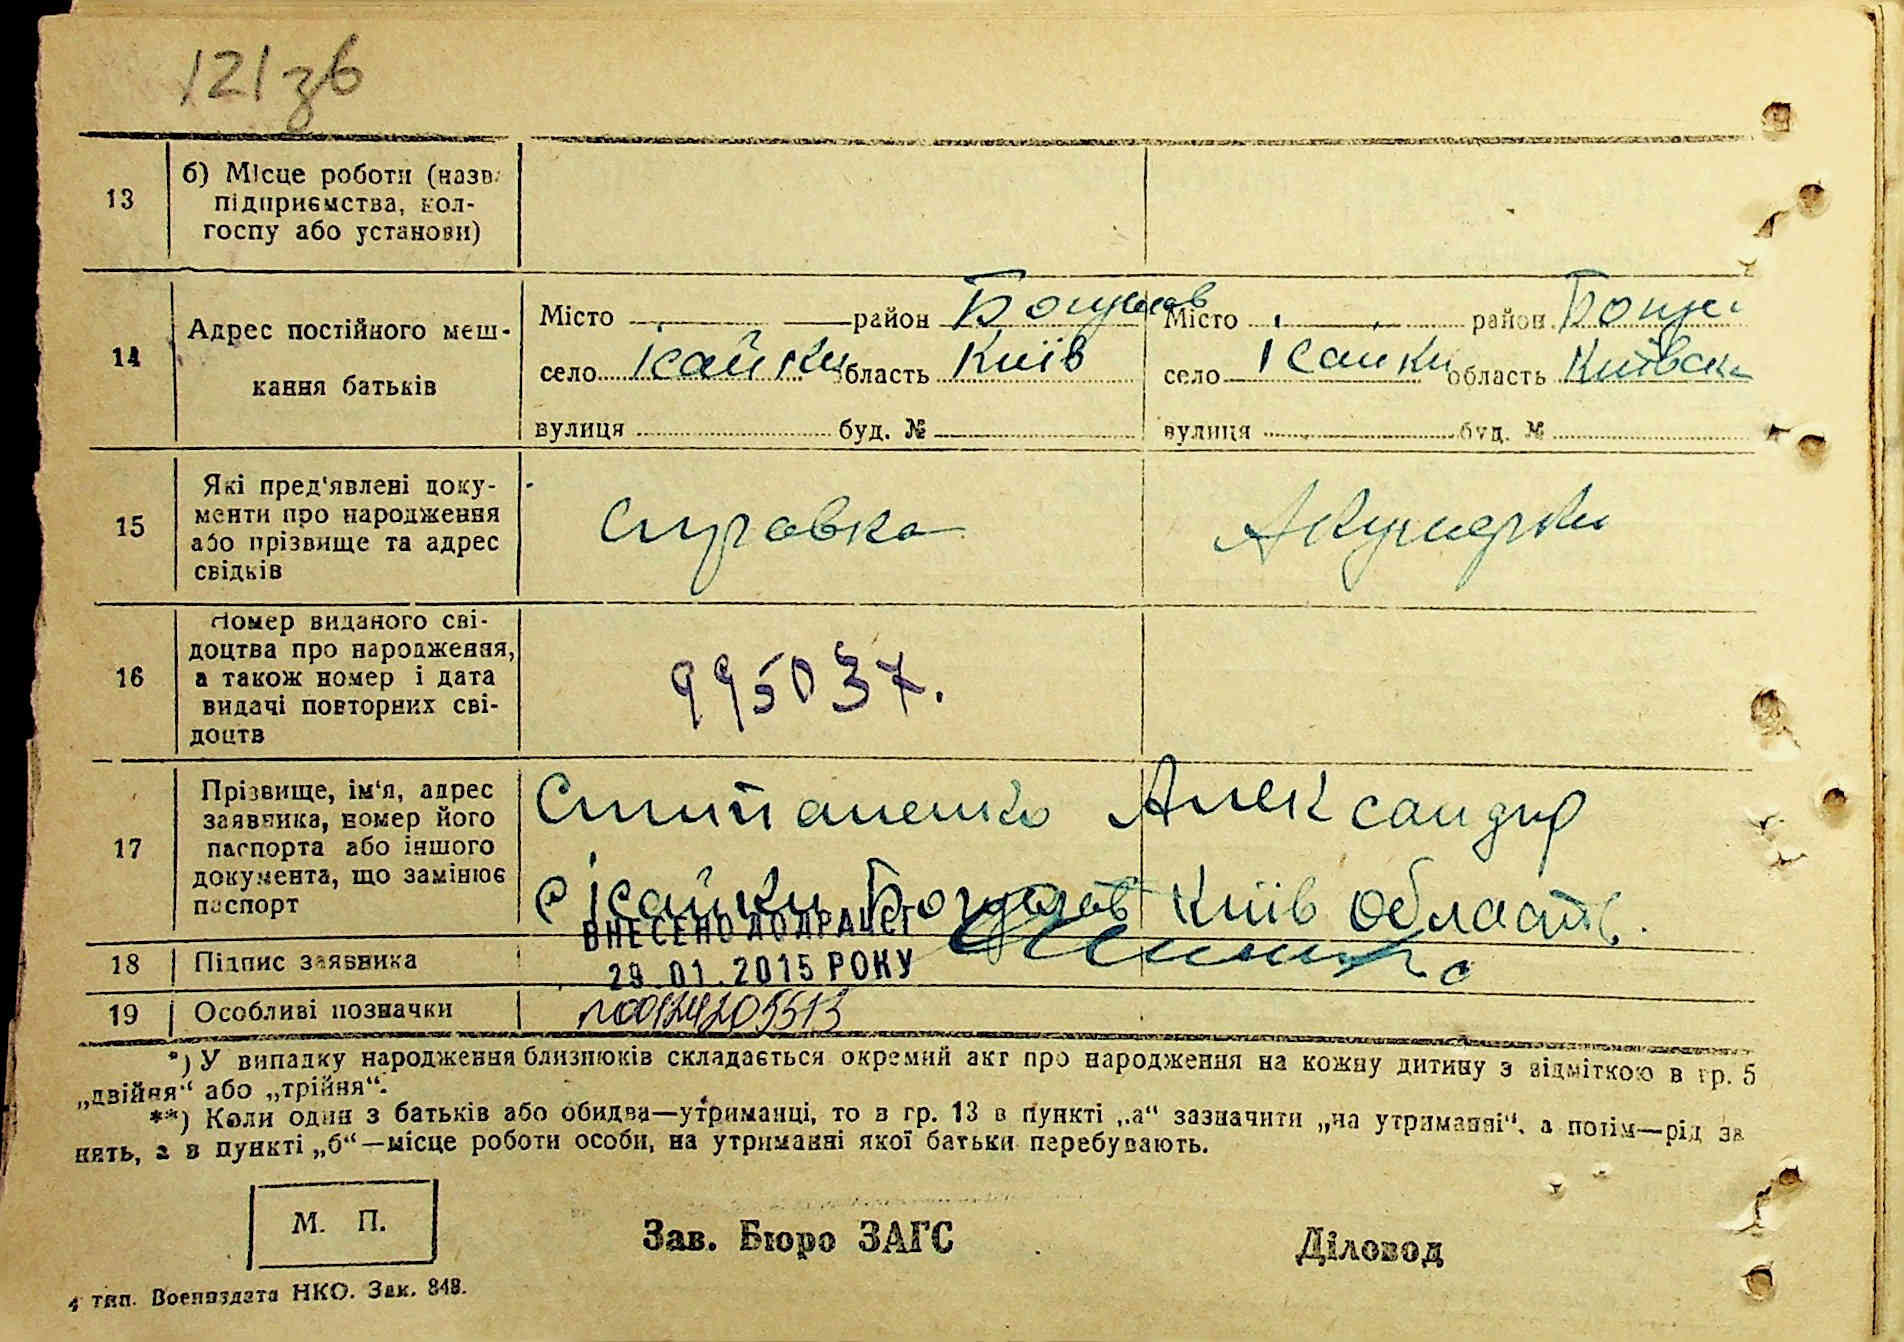 121 зв
13
б) Місце роботи (назв
підприємства, кол-
госпу або установи)
14
Адрес постійного меш-
кання батьків
Місто район Богуслав
село Ісайки область Київ
вулиця буд. №
Місто район Богус
село Ісайки область Київська
вулиця буд. №
15
Які пред'явлені доку-
менти про народження
або прізвище та адрес
свідків
Справка Акушерки
16
Номер виданого сві-
доцтва про народження,
а також номер і дата
видачі повторних сві-
доцтв
995037.
17
Прізвище, ім'я, адрес
заявника, номер його
паспорта або іншого
документа, що замінює
паспорт
Александр
с Ісайки Богуслав Київ область.
ВНЕСЕНО ДО ДРАЦСГ
18
Підпис заявника
29.01.2015 РОКУ
19
Особливі позначки
№00124205513
*) У випадку народження близнюків складається окремий акт про народження на кожну дитину з відміткою в гр. 5
„двійня“ або „трійня“.
**) Коли один з батьків або обидва—утриманці, то в гр. 13 в пункті „а“ зазначити „на утриманні“, а потім—рід за
нять, а в пункті „б“—місце роботи особи, на утриманні якої батьки перебувають.
М. П.
Зав. Бюро ЗАГС
Діловод
4 тип. Воениздата НКО. Зак. 848.